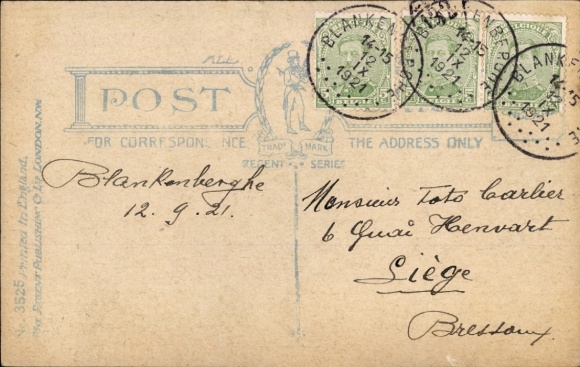 ALL
POST
FOR CORRESPONDENCE
THE ADDRESS ONLY
TRADE MARK
REGENT SERIES
BLANKENBERGHE
14-15
12
IX
1921
BLANKENBERGHE
14-15
12
IX
1921
BLANKE
14-15
IX
1921
Blankenberghe
12.9.21.
Monsieur Toto Carlier
6 Quai Henvart
Liège
Bressoux
No. 3525 Printed in England.
The Regent Publishing Co Ltd London. NW